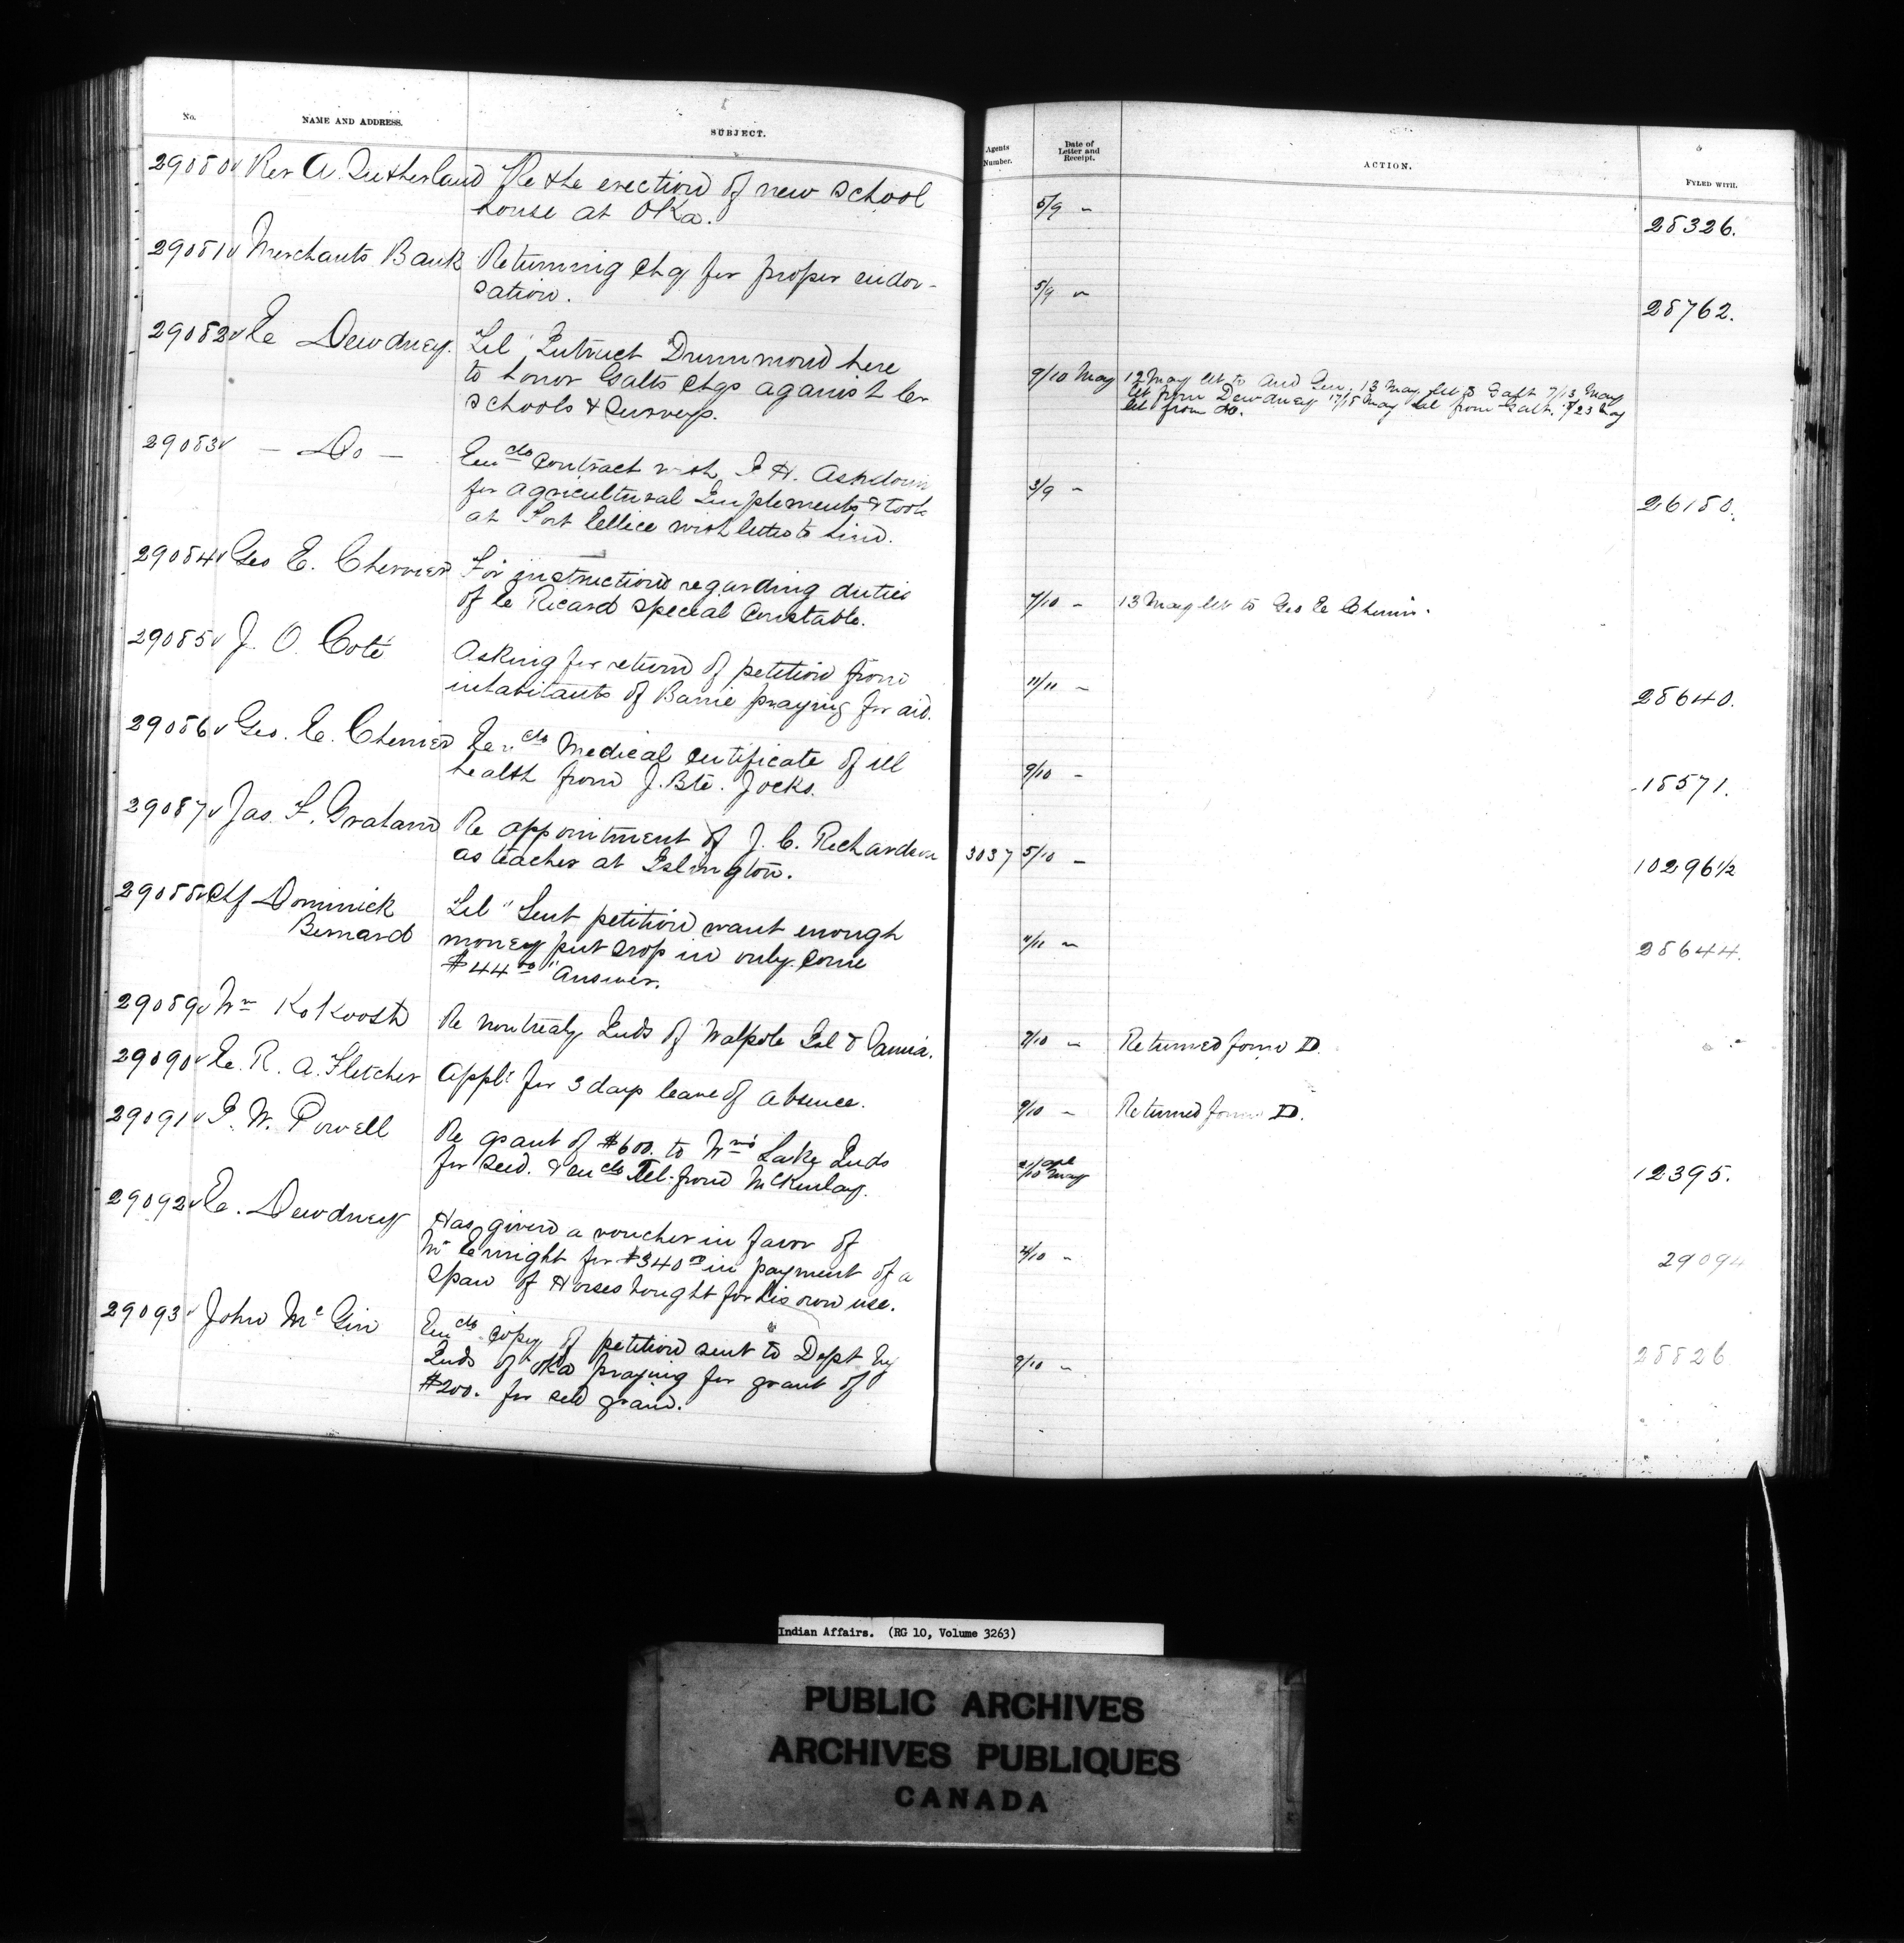 No. NAME AND ADDRESS. SUBJECT. Agents Number. Date of Letter and Receipt. ACTION. FYLED WITH.
29080 Rev A. Sutherland Re the erection of new School 5/9 " 28326.
house at Oka.
29081 Merchants Bank Returning chq for proper endor- 5/9 " 28762.
sation.
29082 E Dewdney. Tel "Intruct Drummond here 9/10 May 12 May let to Aud Gen. 13 May let to Galt 7/13 May
to honor Galts chqs against let from Dewdney 17/18 May tel from Galt. 23 May
Schools & Surveys. let from do.
29083 — Do — Encls Contract with J H. Ashdown 3/9 " 26180.
for Agricultural Implements & tools
at Fort Ellice with letter to him.
29084 Geo E. Cherrier For instructions regarding duties 7/10 " 13 May let to Geo E Cherrier.
of E Ricard Special Constable.
29085 J. O. Coté Asking for return of petition from 11/11 " 28640.
inhabitants of Barrie praying for aid.
29086 Geo. E. Cherrier Encls Medical Certificate of ill 9/10 " 18571.
health from J. Bte. Jocks.
29087 Jas. F. Graham Re appointment of J. C. Richardson 3037 5/10 " 10296 1/2
as teacher at Islington.
29088 Chf Dominick Tel "Sent petition want enough 11/11 " 28644.
Bernard money put crop in only come
$44.00" Answer.
29089 Wm KoKoosh Re non treaty Inds of Walpole Isl & Sarnia. 7/10 " Returned form D.
29090 E. R. A. Fletcher Appls for 3 days leave of absence. 9/10 " Returned form D.
29091 I. W. Powell Re grant of $600. to Wms Lake Inds 21 Apl 12395.
for Seed. & encls Tel. from McKinlay. /10 May
29092 E. Dewdney Has given a voucher in favor of 4/10 " 29094
Mr Enright for $340.00 in payment of a
span of Horses bought for his own use.
29093 John McGirr Encls copy of petition sent to Dept by 9/10 " 28826
Inds of Oka praying for grant of
$200. for seed grain.
Indian Affairs. (RG 10, Volume 3263)
PUBLIC ARCHIVES
ARCHIVES PUBLIQUES
CANADA